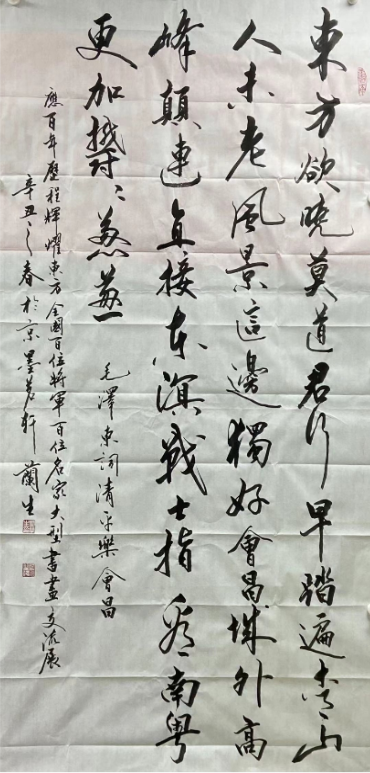 東方欲曉莫道君行早踏遍青山
人未老風景這邊獨好會昌城外高
峰顛連直接東溟戰士指看南粵
更加鬱〻蔥蔥
毛澤東詞清平樂會昌
應百年歷程輝耀東方全國百位將軍百位名家大型書畫交流展
辛丑之春於京墨 軒 蘭生